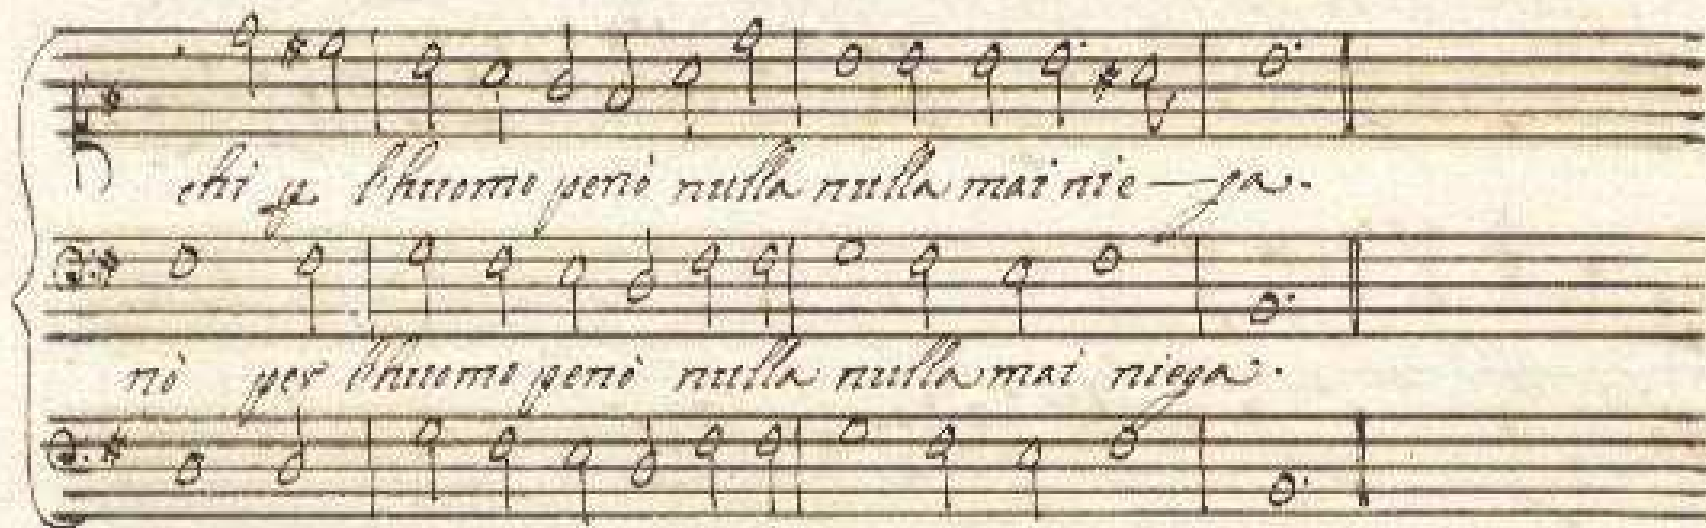 chi p l'huomo penò nulla nulla mai nie—ga.
nò per l'huomo penò nulla nulla mai niega.